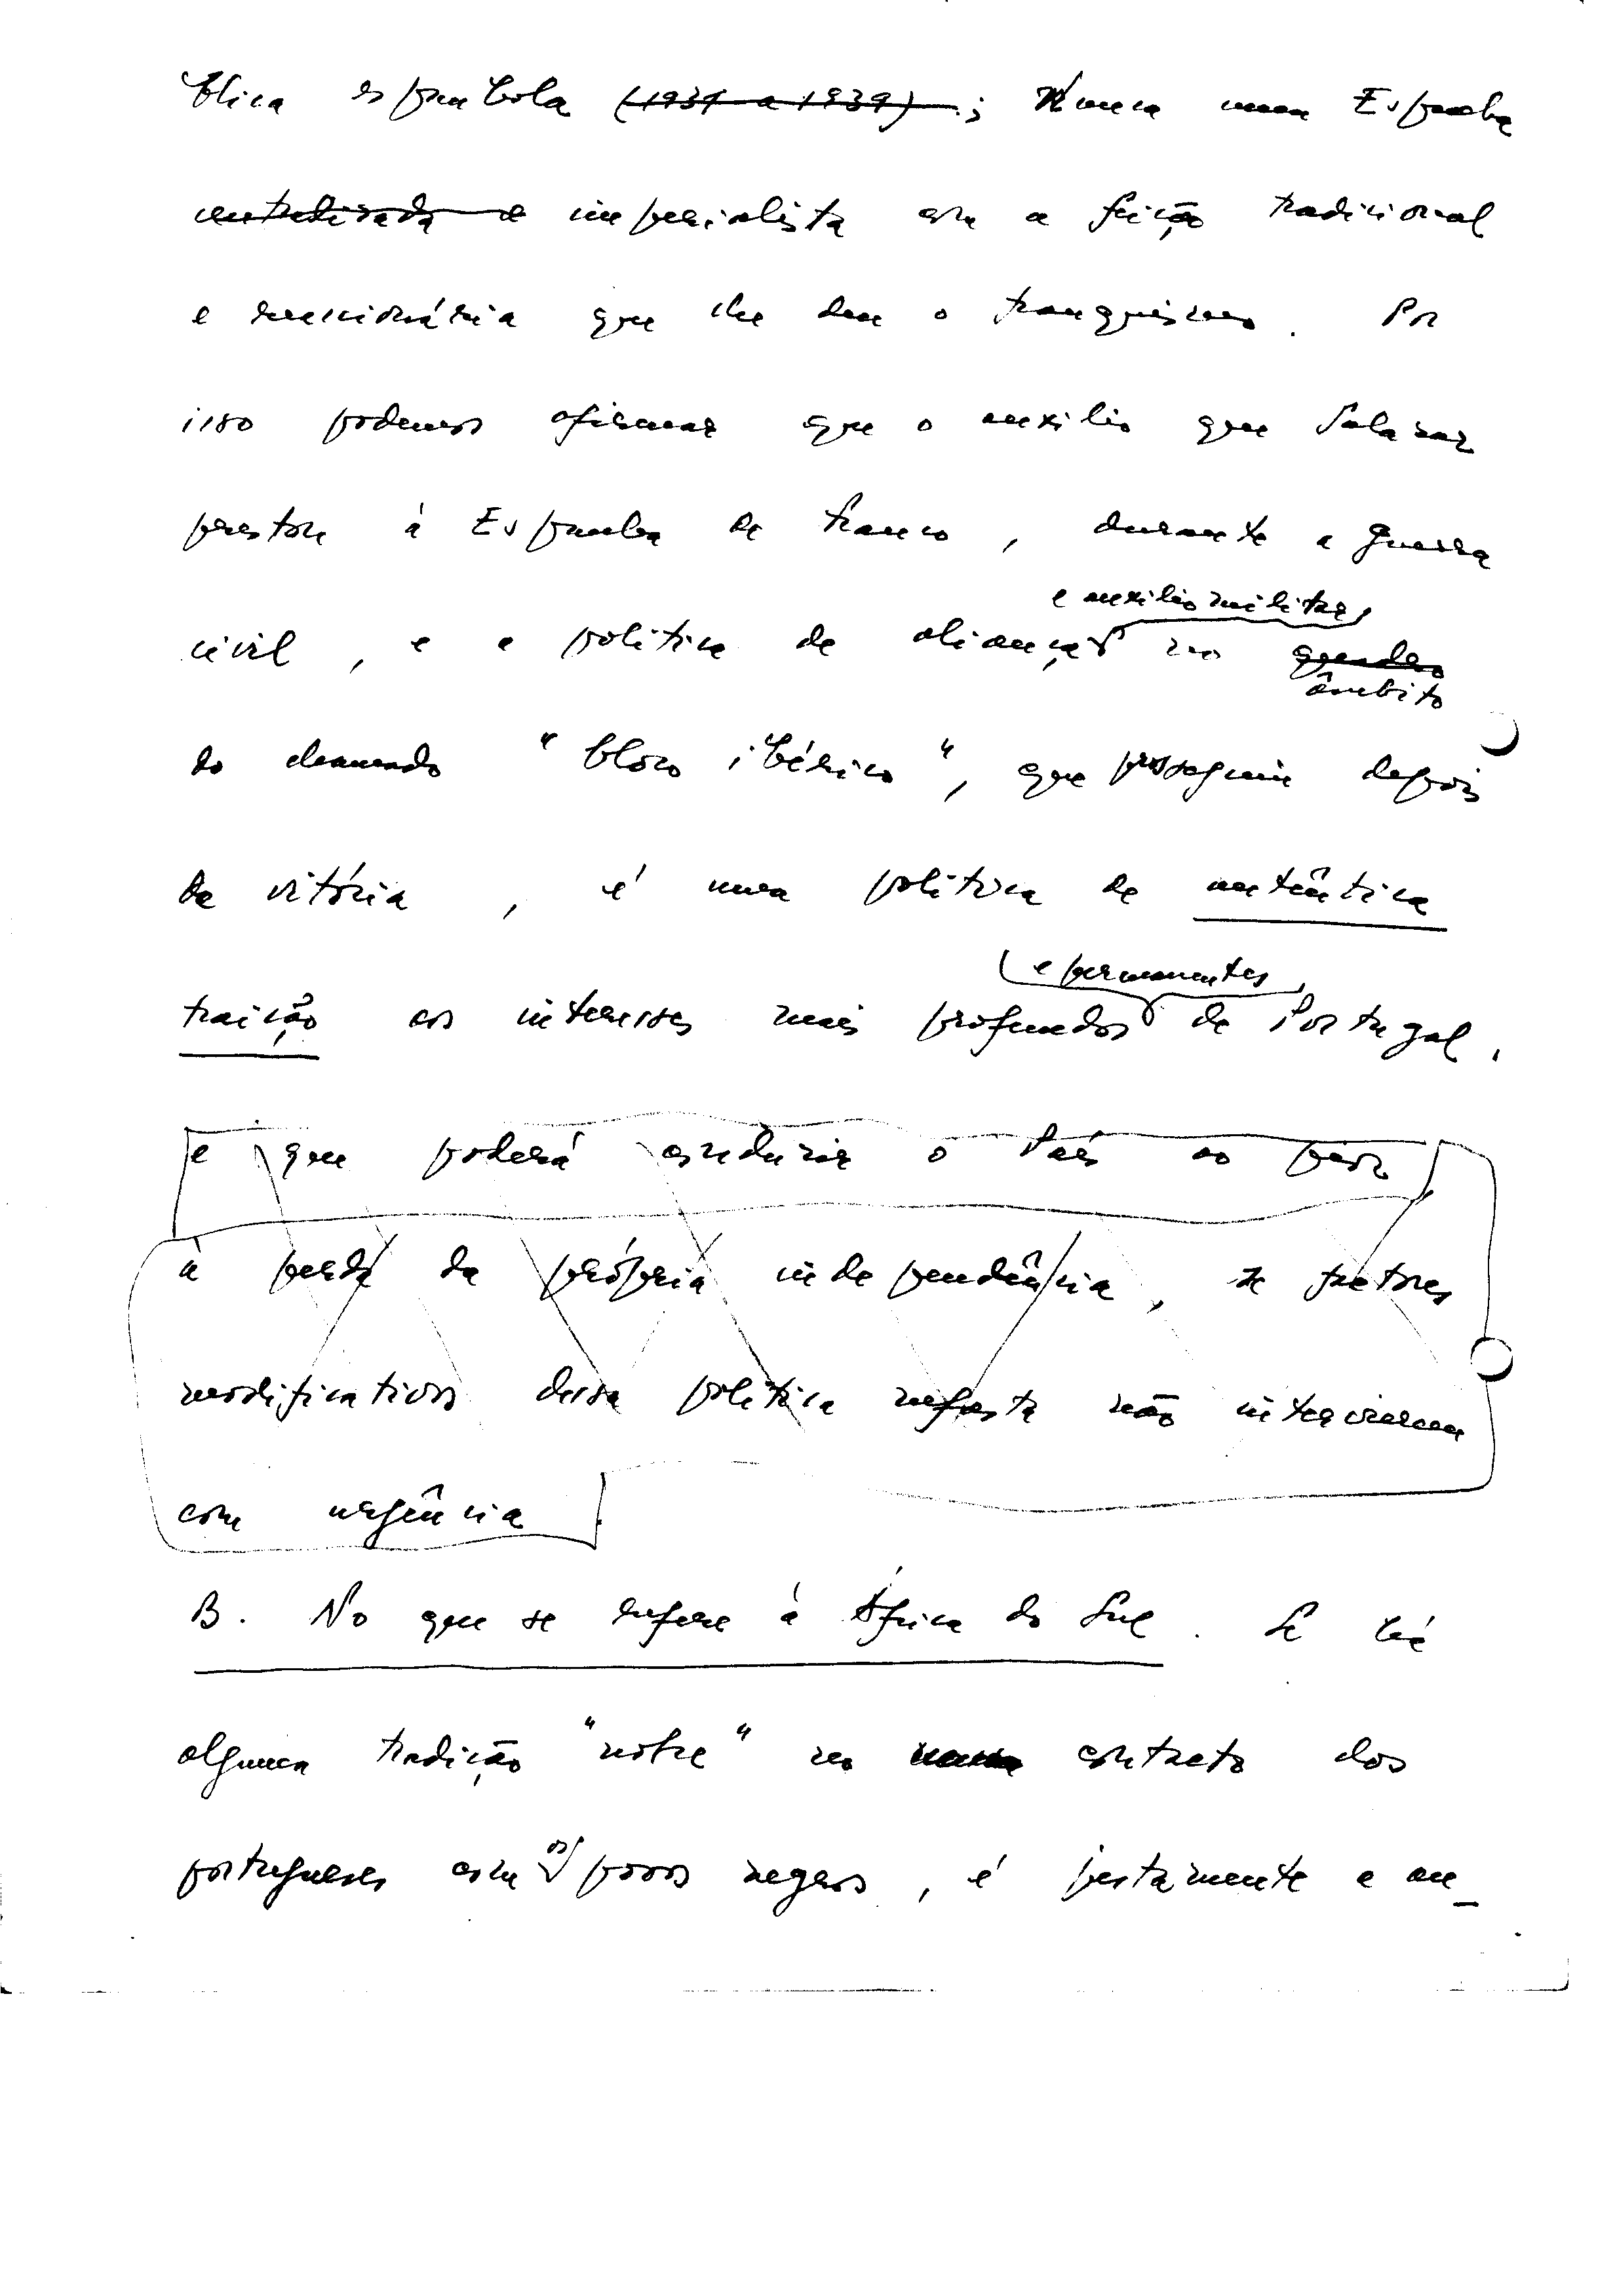 blica espanhola (1931 a 1939); Nunca numa Espanha
centralizada e imperialista com a feição tradicional
e reaccionária que lhe deu o franquismo. Por
isso podemos afirmar que o auxílio que Salazar
prestou à Espanha de Franco, durante a guerra
e auxílio militar,
civil, e a política de aliança no quadro
âmbito
do chamado "bloco ibérico", que prosseguiu depois
da vitória, é uma política de autêntica
e permanentes,
traição aos interesses mais profundos de Portugal,
e que poderá conduzir o País ao pior
à perda da própria independência, se factores
modificativos dessa política nefasta não intervierem
com urgência
B. No que se refere à África do Sul. Se há
alguma tradição "nobre" no contacto dos
os
portugueses com povos negros, é justamente a au-